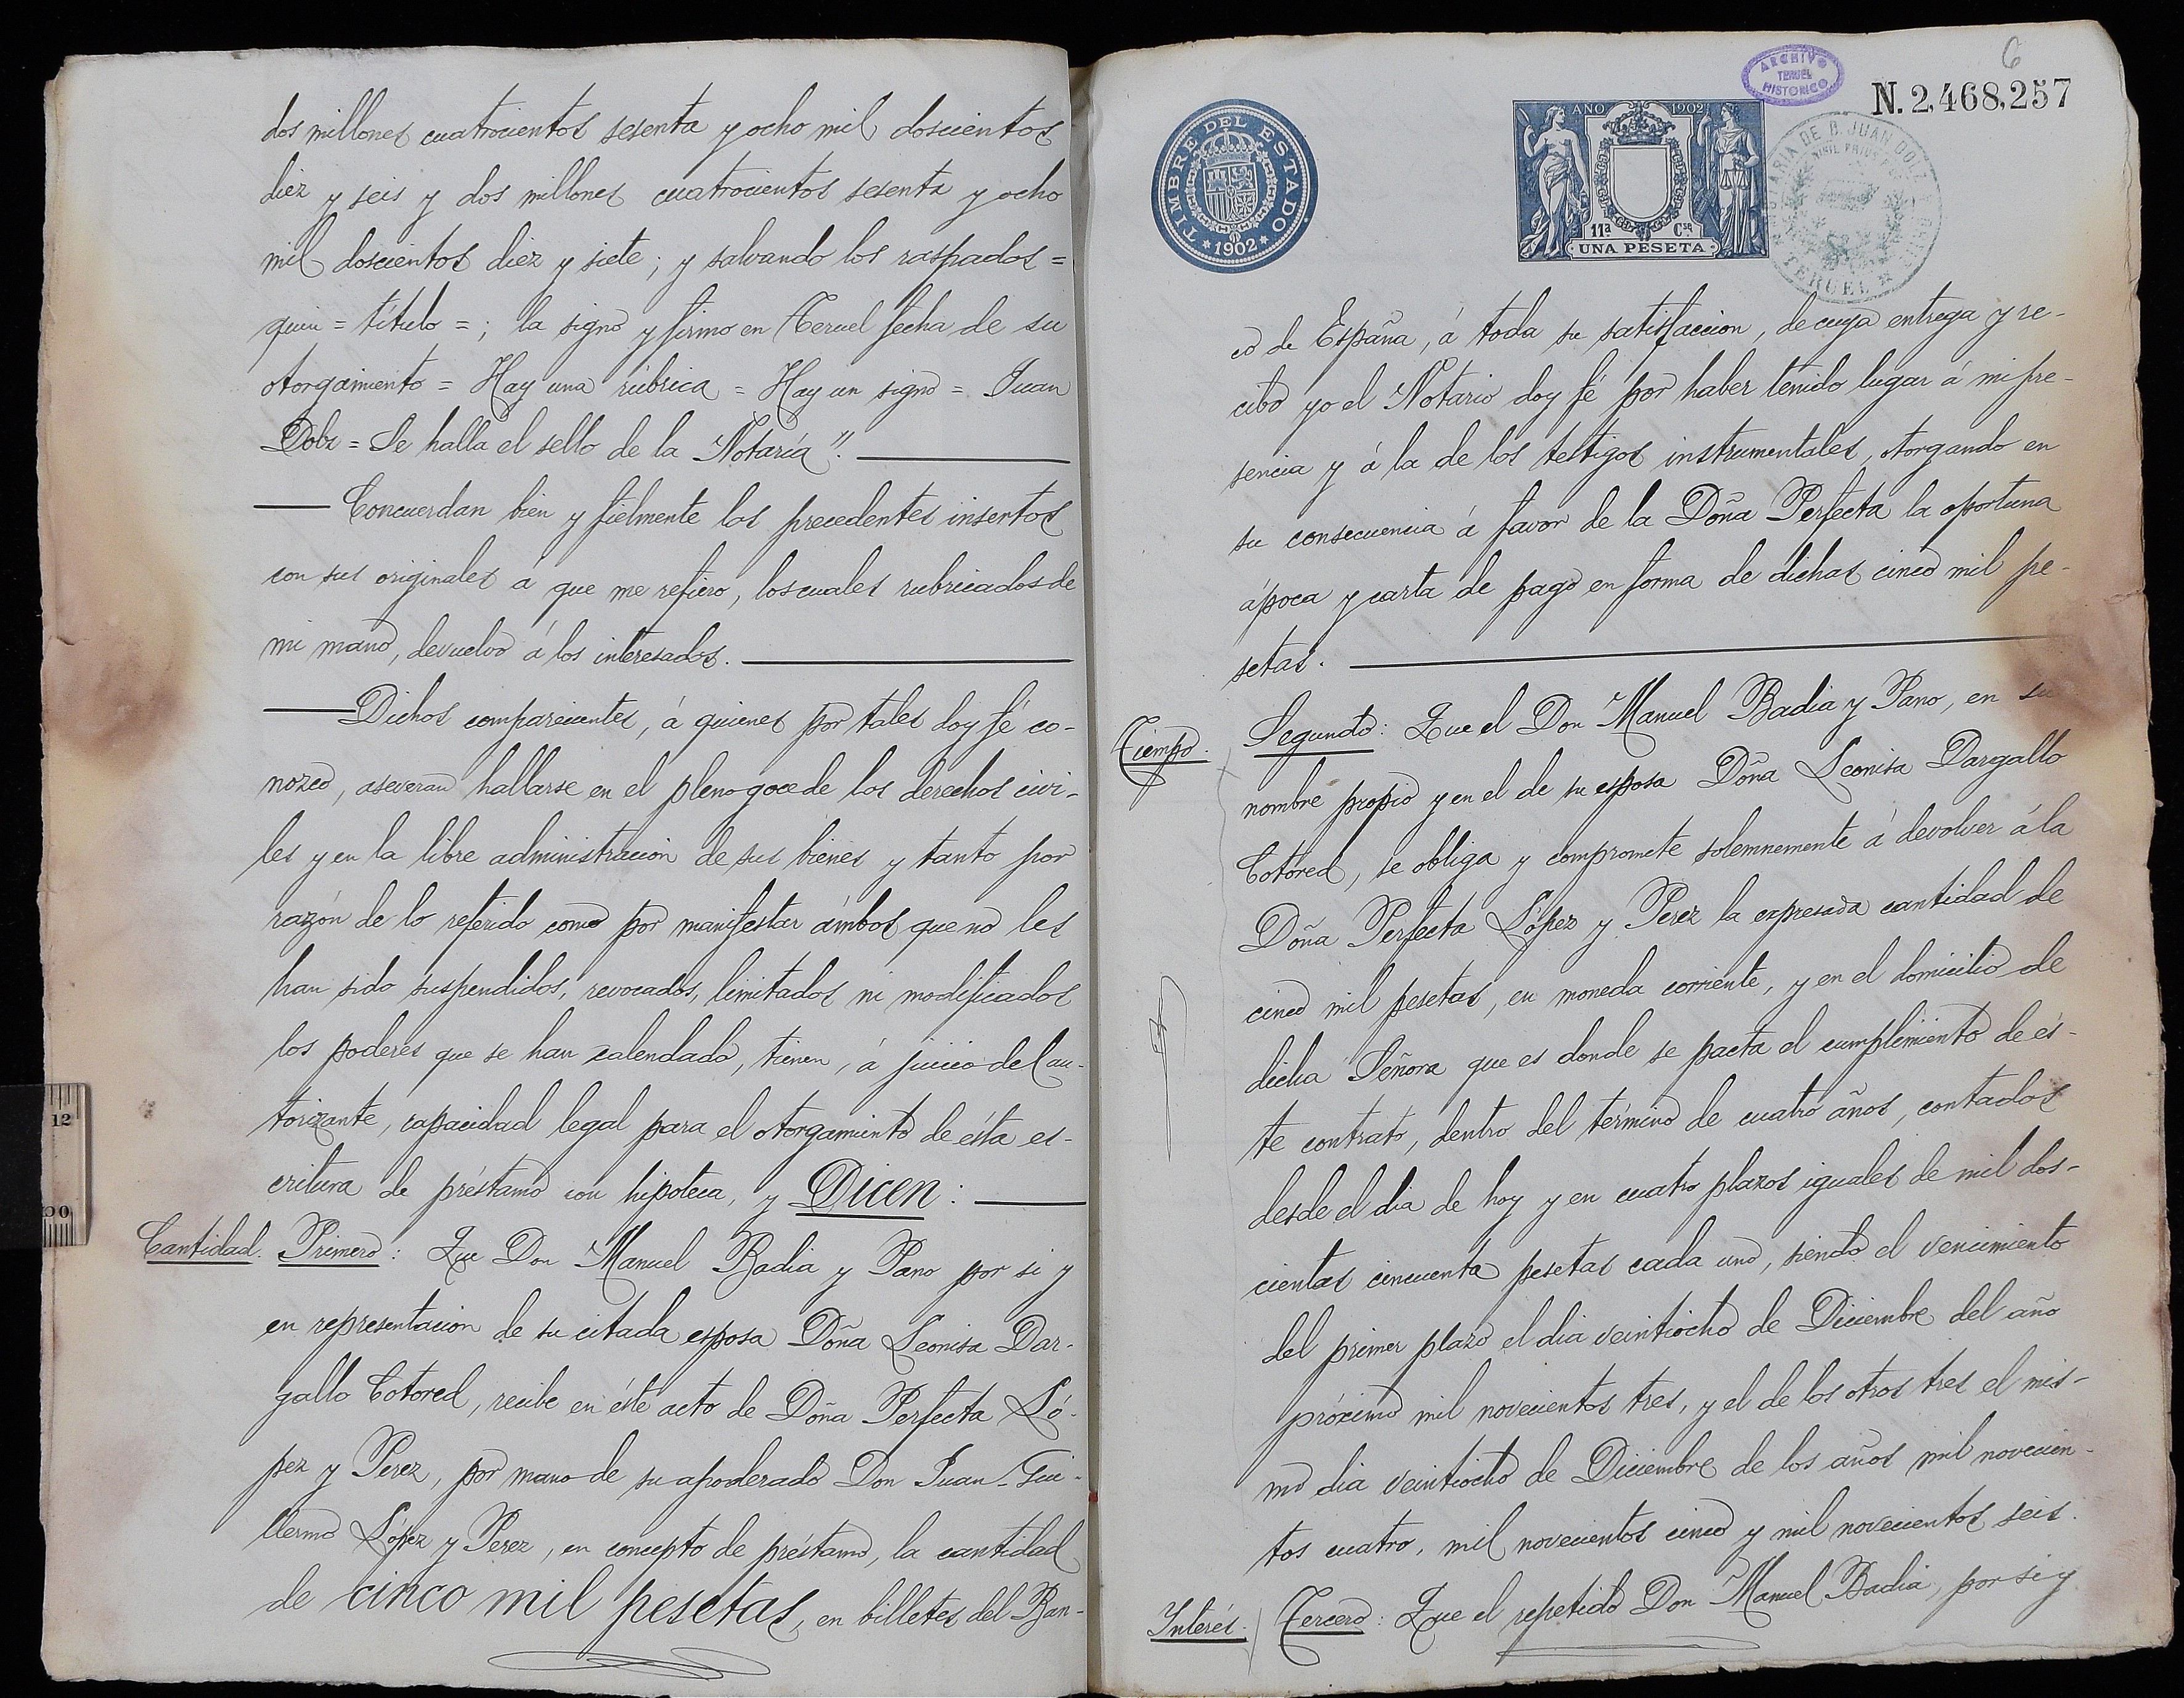 dos millones cuatrocientos sesenta y ocho mil doscientos
diez y seis y dos millones cuatrocientos sesenta y ocho
mil doscientos diez y siete; y salvando los raspados =
quin = título =; la signo y firmo en Teruel fecha de su
otorgamiento = Hay una rúbrica = Hay un signo = Juan
Dolz = Se halla el sello de la Notaría".
Concuerdan bien y fielmente los precedentes insertos
con sus originales á que me refiero, los cuales rubricados de
mi mano, devuelvo á los interesados.
Dichos comparecientes, á quienes por tales doy fé co-
nozco, aseveran hallarse en el pleno goce de los derechos civi-
les y en la libre administracion de sus bienes y tanto por
razón de lo referido como por manifestar ámbos que no les
han sido suspendidos, revocados, limitados ni modificados
los poderes que se han calendado, tienen, á juicio del au-
torizante, capacidad legal para el otorgamiento de ésta es-
critura de préstamo con hipoteca, y Dicen:
Cantidad. Primero: Que Don Manuel Badia y Pano por si y
en representacion de su citada esposa Doña Leonisa Dar-
gallo Cotored, recibe en éste acto de Doña Perfecta Ló-
pez y Perez, por mano de su apoderado Don Juan Gui-
llermo López y Perez, en concepto de préstamo, la cantidad
de cinco mil pesetas, en billetes del Ban-
6
ARCHIVO
TERUEL
HISTORICO
N.2,468,257
TIMBRE DEL ESTADO
1902
AÑO 1902
11ª Cse
UNA PESETA
NOTARIA DE D. JUAN DOLZ
NIHIL PRIUS FIDE
TERUEL
co de España, á toda su satisfaccion, de cuya entrega y re-
cibo yo el Notario doy fé por haber tenido lugar á mi pre-
sencia y á la de los testigos instrumentales, otorgando en
su consecuencia á favor de la Doña Perfecta la oportuna
ápoca y carta de pago en forma de dichas cinco mil pe-
setas.
Tiempo. Segundo: Que el Don Manuel Badia y Pano, en su
nombre propio y en el de su esposa Doña Leonisa Dargallo
Cotored, se obliga y compromete solemnemente á devolver á la
Doña Perfecta López y Perez la expresada cantidad de
cinco mil pesetas, en moneda corriente, y en el domicilio de
dicha Señora que es donde se pacta el cumplimiento de és-
te contrato, dentro del término de cuatro años, contados
desde el dia de hoy y en cuatro plazos iguales de mil dos-
cientas cincuenta pesetas cada uno, siendo el vencimiento
del primer plazo el dia veintiocho de Diciembre del año
próximo mil novecientos tres, y el de los otros tres el mis-
mo dia veintiocho de Diciembre de los años mil novecien-
tos cuatro, mil novecientos cinco y mil novecientos seis.
Interés. Tercero: Que el repetido Don Manuel Badia, por si y
12